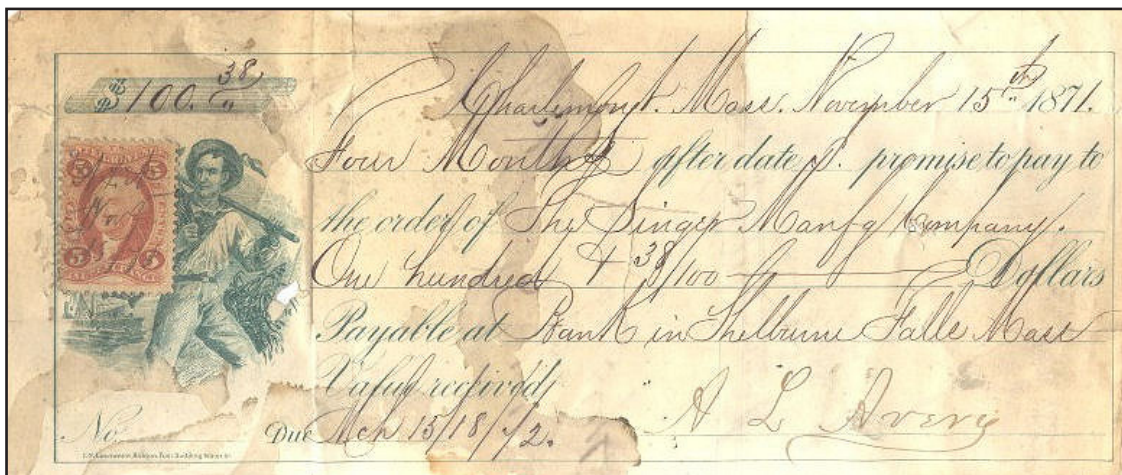 $100.38
Charlemont. Mass. November 15th 1871.
Four Months after date I promise to pay to
the order of The Singer Manfg Company.
One hundred + 38/100 Dollars
Payable at Bank in Shelburne Falls Mass
Value received
No. Due Mch 15/18/72.
A L Avery
5 5
5 5